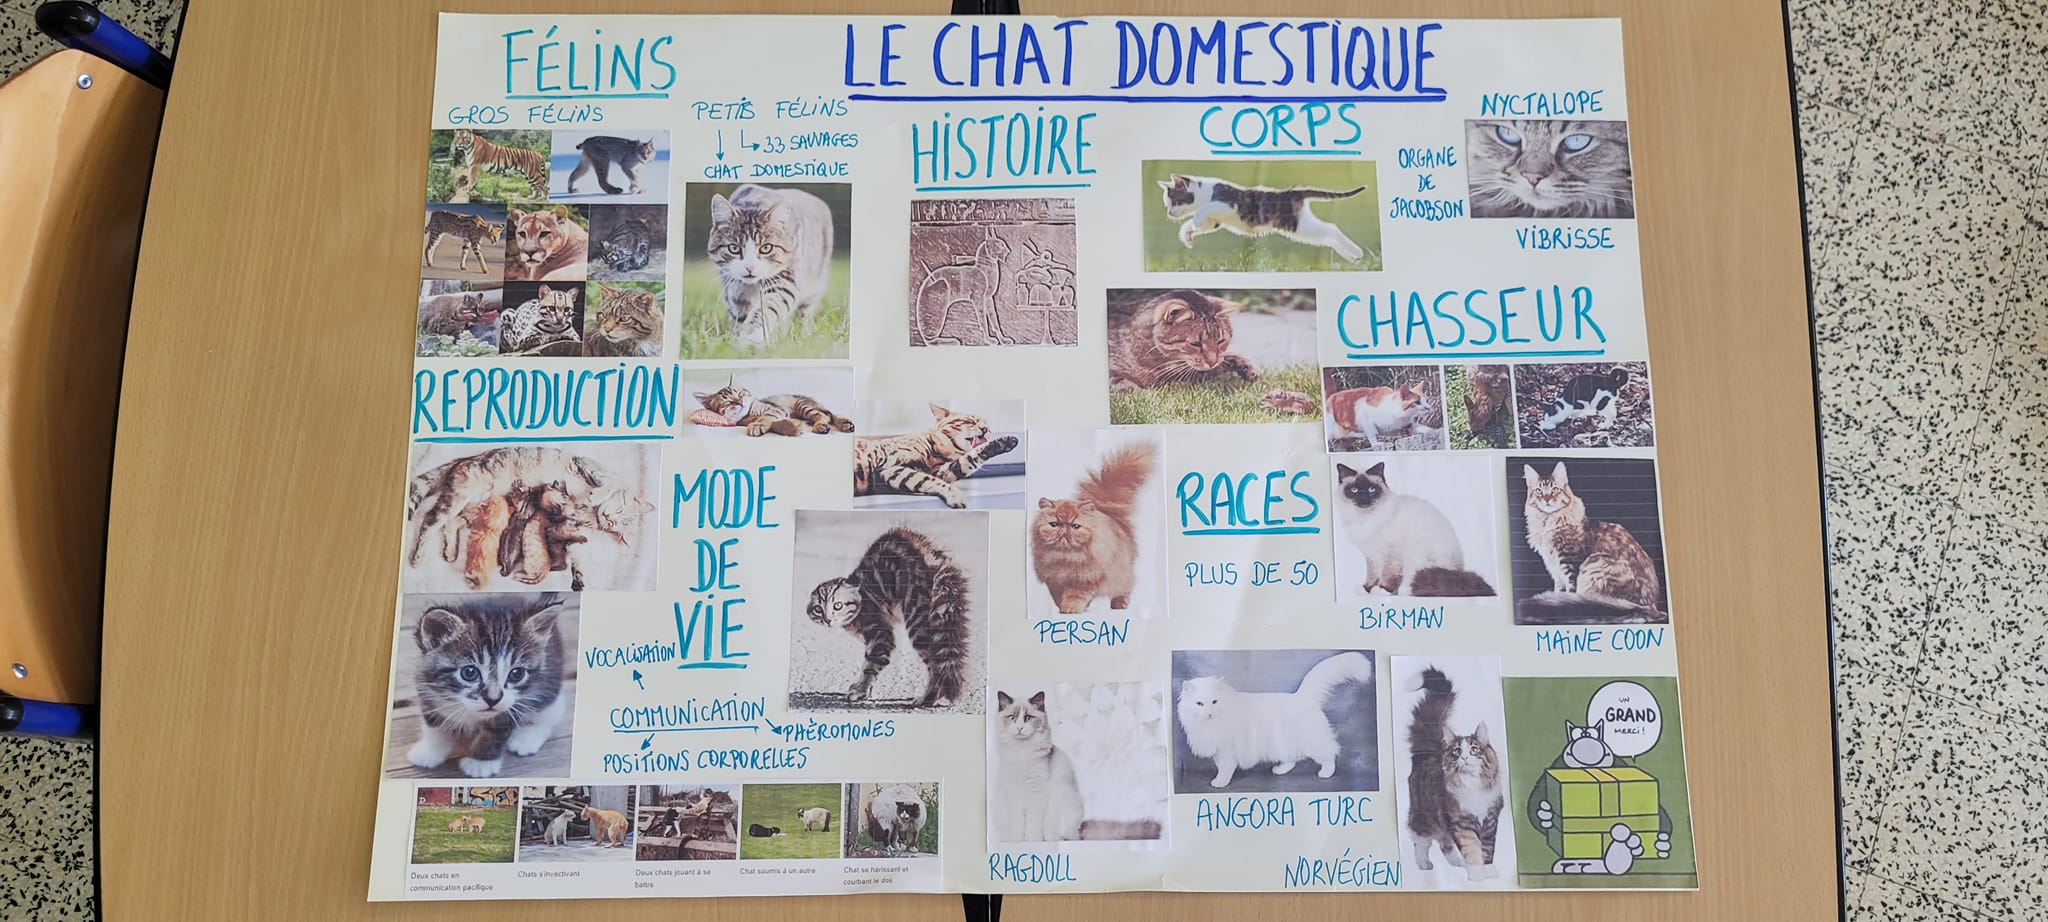 LE CHAT DOMESTIQUE
FÉLINS
GROS FÉLINS
PETITS FÉLINS
33 SAUVAGES
CHAT DOMESTIQUE
HISTOIRE
CORPS
NYCTALOPE
ORGANE
DE
JACOBSON
VIBRISSE
CHASSEUR
REPRODUCTION
MODE
DE
VIE
VOCALISATION
COMMUNICATION
PHÈROMONES
POSITIONS CORPORELLES
Deux chats en
communication pacifique
Chats s'invectivant
Deux chats jouant à se
battre
Chat soumis à un autre
Chat se hérissant et
courbant le dos
RACES
PLUS DE 50
PERSAN
BIRMAN
MAINE COON
RAGDOLL
ANGORA TURC
NORVÉGIEN
UN
GRAND
MERCI !